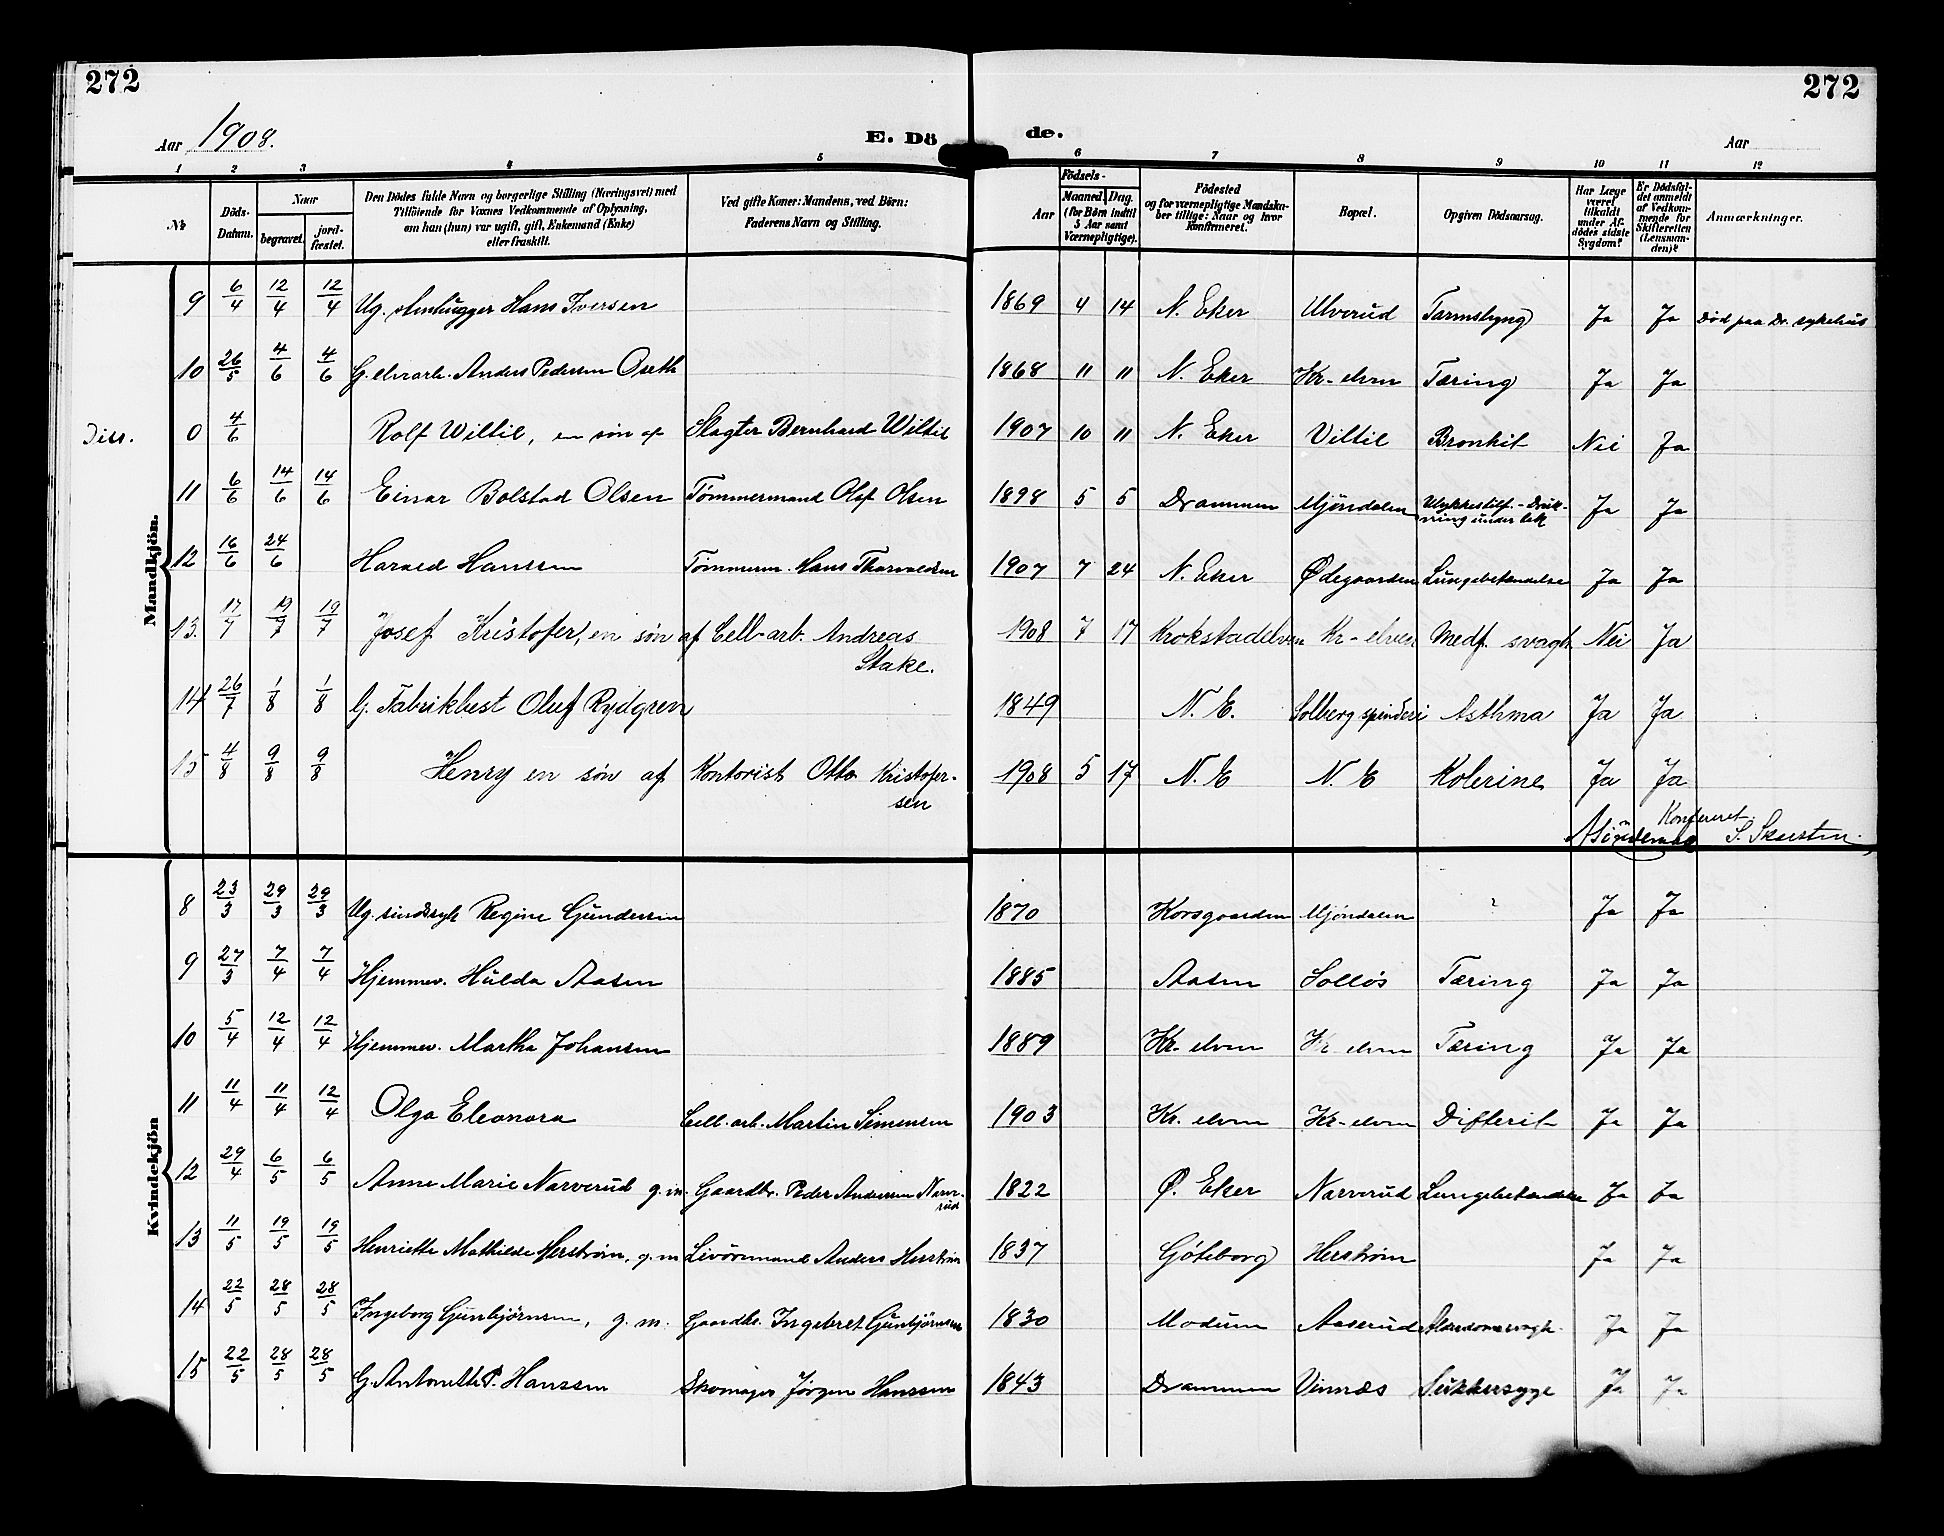 272
272
Aar 1908.
E. Dö de.
Aar
1 2 3 4 5 6 7 8 9 10 11 12
№
Döds-Datum.
Naar
begravet.
jord-fæstet.
Den Dödes fulde Navn og borgerlige Stilling (Næringsvei) med
Tilföiende for Voxnes Vedkommende af Oplysning,
om han (hun) var ugift, gift, Enkemand (Enke)
eller fraskilt.
Ved gifte Koner: Mandens, ved Börn:
Faderens Navn og Stilling.
Födsels-
Aar
Maaned. Dag.
(for Börn indtil
5 Aar samt
Værnepligtige).
Födested
og for værnepligtige Mandska-
ber tillige: Naar og hvor
konfirmeret.
Bopæl.
Opgiven Dödsaarsag.
Har Læge
været
tilkaldt
under Af-
dödes sidste
Sygdom?
Er Dödsfal-
det anmeldt
af Vedkom-
mende for
Skifteretten
(Lensman-
den)?
Anmærkninger.
Mandkjön.
9 6/4 12/4 12/4 Ug. stenhugger Hans Iversen 1869 4 14 N. Eker Ulverud Tarmslyng Ja Ja Död paa Dr. sykehus
10 26/5 4/6 4/6 G. elvearb. Anders Pedersen Oseth 1868 11 11 N. Eker Kr-elven Tæring Ja Ja
Diss. 0 4/6 Rolf Wiltil, en søn af Slagter Bernhard Wiltil 1907 10 11 N. Eker Viltil Bronkit Nei Ja
11 6/6 14/6 14/6 Einar Bolstad Olsen Tømmermand Olaf Olsen 1898 5 5 Drammen Mjøndalen Ulykkestilf. - Druk-
ning under lek Ja Ja
12 16/6 24/6 Harald Hanssen Tømmerm. Hans Thorvaldsen 1907 7 24 N. Eker Ødegaarden Lungebetændelse Ja Ja
13. 17/7 19/7 19/7 Josef Kristofer, en søn af Cell-arb. Andreas
Stake. 1908 7 17 Krokstadelven Kr-elven Medf. svagh. Nei Ja
14 26/7 1/8 1/8 G. Fabrikbest Oluf Rydgren 1849 N. E. Solberg spinderi Asthma Ja Ja
15 4/8 9/8 9/8 Henry en søn af Kontorist Otto Kristofer-
sen 1908 5 17 N. E N. E Kolerine Ja Ja
Konfereret
Kvindekjön
8 23/3 29/3 29/3 Ug. sindssyk Regine Gundersen 1870 Korsgaarden Mjøndalen ? Ja Ja
9 27/3 7/4 7/4 Hjemmev. Hulda Aasen 1885 Aasen Solløs Tæring Ja Ja
10 5/4 12/4 12/4 Hjemmev. Martha Johansen 1889 Kr. elven Kr elven Tæring Ja Ja
11 11/4 11/4 12/4 Olga Eleonora Cell. arb. Martin Simensen 1903 Kr. elven Kr-elven Difterit Ja Ja
12 29/4 6/5 6/5 Anne Marie Narverud g. m. Gaardbr. Peder Andersen Narve-
rud 1822 Ø. Eker Narverud Lungebetændelse Ja Ja
13 11/5 19/5 19/5 Henriette Mathilde Herstrøm, g. m Livörnmand Anders Herstrøm 1837 Gøteborg Herstrøm Ja Ja
14 22/5 28/5 28/5 Ingeborg Gunbjørnsen, g. m. Gaardbr. Ingebret Gunbjørnsen 1830 Modum Aaserud Alderdomssvagh. Ja Ja
15 22/5 28/5 28/5 G. Antonette P. Hanssen Skomager Jørgen Hanssen 1843 Drammen Vinnæs Sukkersyge Ja Ja